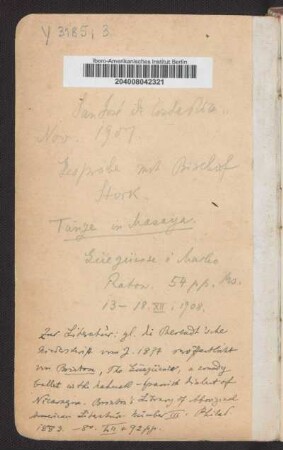 Y 3985, 3.
Ibero-Amerikanisches Institut Berlin
204008042321
San José de Costa Rica
Nov. 1907
Gespräche mit Bischof
Stork.
Tänze in Masaya.
Güegüense ó Macho
Raton. 54 pp.
13–18. XII. 1908.
Zur Literatur: die Berendt'sche
vom J. 1874 veröffentlicht
von Brinton, The Güegüence, a comedy
ballet in the Nahuatl-Spanish dialect of
Nicaragua. Brinton's Library of Aboriginal
American Literature number III. Philad
1883. 8° 92 pp.